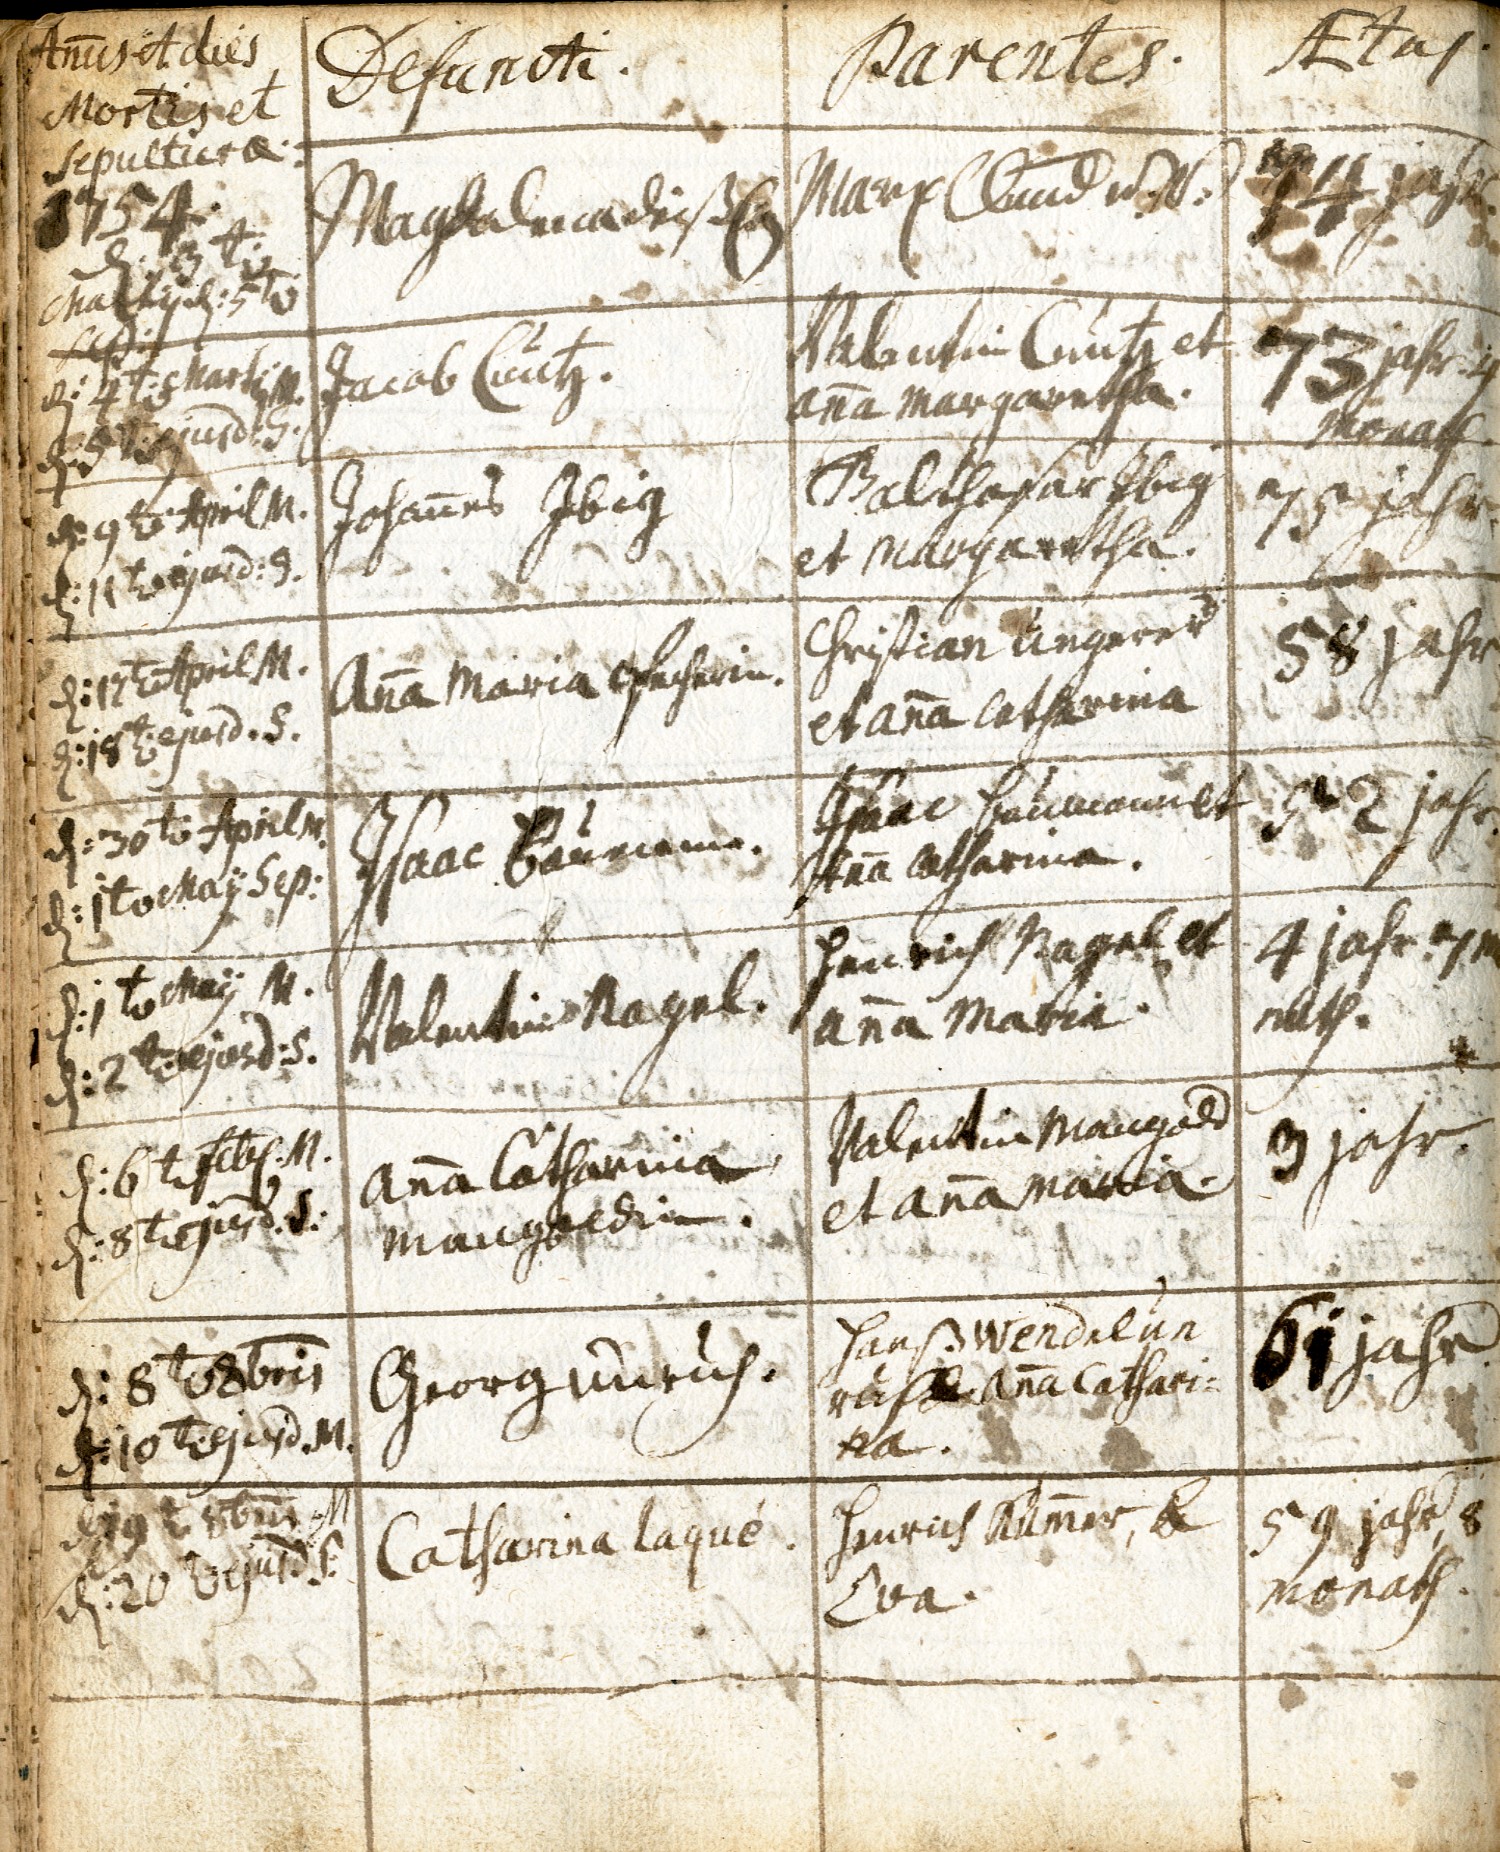 Añus et dies
Mortis et
Sepulturæ:
Defuncti.
Parentes.
Ætas.
1754.
d: 3t:
d: 5to
Magdalena
Marx
74 jahr.
d: 4t: Martij M.
d: 5t: ejusd: S.
Jacob Cuntz.
Valentin Cuntz et
añа Margaretha.
73 jahr. 4
Monath
d: 9t: April M.
d: 11t: ejusd: S.
Johañes Ibig
Balthasar Ibig
et Margaretha.
75 jahr.
d: 17t: April M.
d: 18t: ejusd. S.
Aña Maria
Christian Ungerer
et aña Catharina
58 jahr
d: 30to April M.
d: 1to May Sep:
Isaac Baumann.
Isaac Baumann et
Aña Catharina.
2 jahr.
d: 1to May M.
d: 2t: ejusd: S.
Valentin Nagel.
Henrich Nagel et
aña Maria.
4 jahr. 7 mo
nath.
d: 6t: M.
d: 8t: ejusd. S:
Aña Catharina
Mangoldin.
Valentin Mangold
et Aña Maria.
3 jahr.
d: 8to 8bris
d: 10t: ejusd. M.
Georg
Hanß Wendel
Aña Cathari=
na.
61 jahr.
d: 19t: 8bris M
d: 20t: ejusd. S:
Catharina laqué.
Henrich &
Eva.
59 jahr, 8
monath.